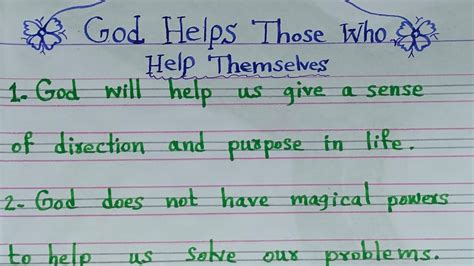 God Helps Those Who
Help Themselves
1. God will help us give a sense
of direction and purpose in life.
2- God does not have magical powers
to help us solve our problems.